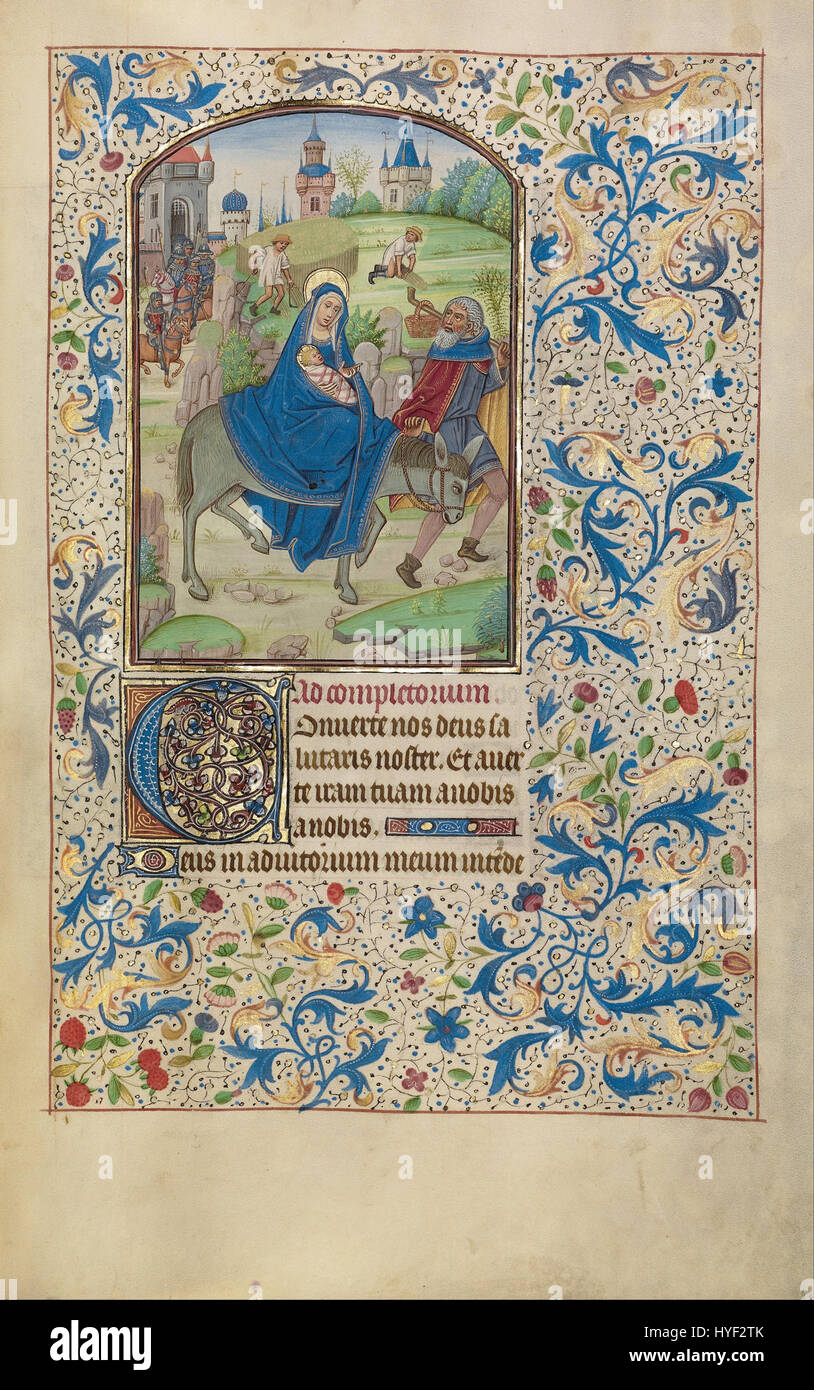 Ad completorium
Conuerte nos deus sa
lutaris noster. Et auer
te iram tuam anobis
anobis.
Deus in adiutorium meum intēde
alamy
Image ID: HYF2TK
www.alamy.com